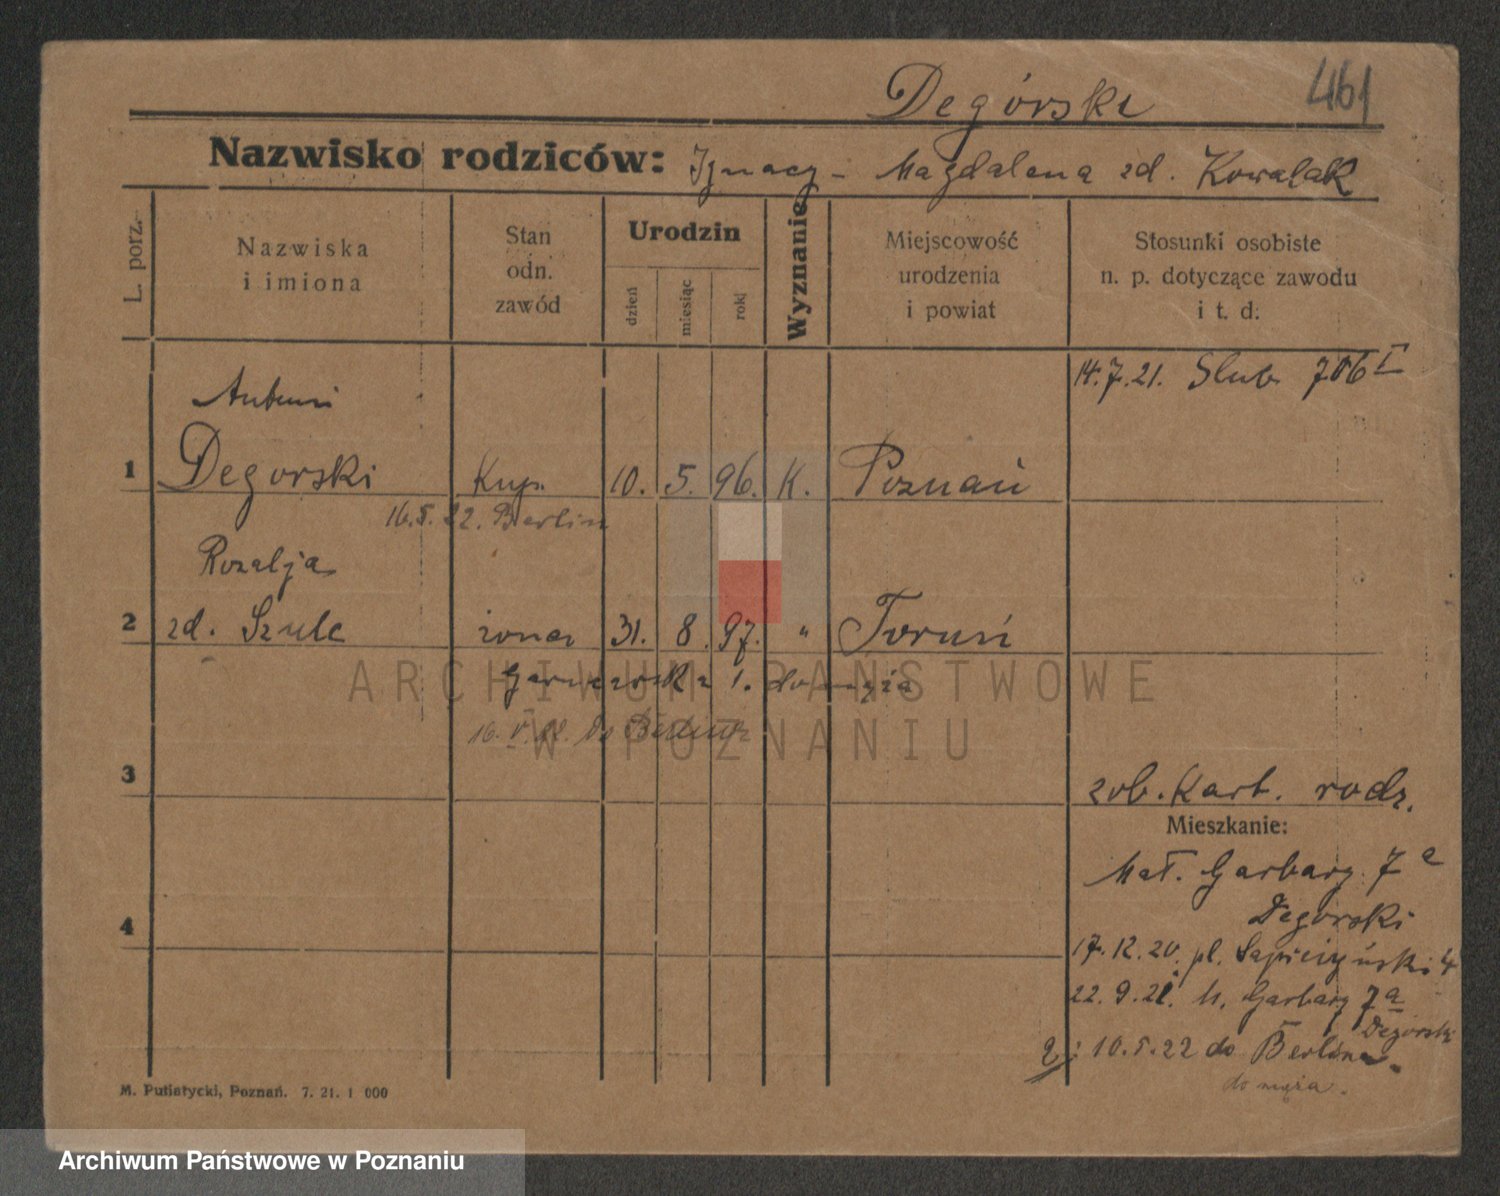 Degórski 461
Nazwisko rodziców: Ignacy - Magdalena zd. Kowalak
L. porz.
Nazwiska
i imiona
Stan
odn.
zawód
Urodzin
dzień
miesiąc
rok
Wyznanie
Miejscowość
urodzenia
i powiat
Stosunki osobiste
n. p. dotyczące zawodu
i t. d.
14.7.21. Slub 706 I
Antoni
1 Degorski Kup. 10. 5. 96. K. Poznań
16.5.22. Berlin
Rozalja
2 zd. Szulc żona 31. 8. 97. " Toruń
Garncarska 1. do męża
16.V.22. do Berlina
3
zob. Kart. rodz.
Mieszkanie:
Mał. Garbary 7a
Degorski
4
17.12.20. pl. Sapieżyński 4
22.9.21. M. Garbary 7a
Degorski
2: 10.5.22 do Berlina
do męża.
M. Putiatycki, Poznań. 7. 21. 1 000
ARCHIWUM PAŃSTWOWE
W POZNANIU
Archiwum Państwowe w Poznaniu